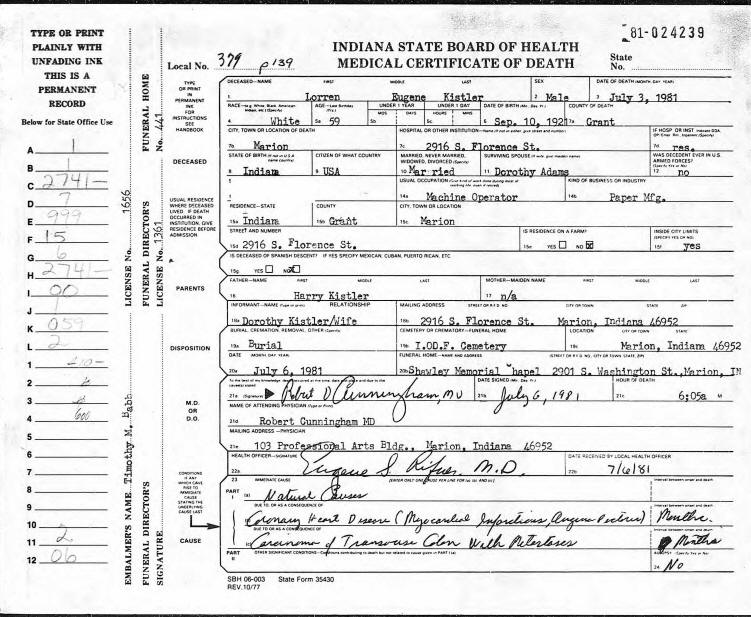 TYPE OR PRINT
PLAINLY WITH
UNFADING INK
THIS IS A
PERMANENT
RECORD
Below for State Office Use
A 1
B 1
C 2741-
D 7
E 999
F 15
G 6
H 2741-
I 00
J 1
K 059
L 2
1
2
3
4 600
5
6
7
8
9
10
11 2
12 06
EMBALMER'S NAME. Timothy M. Babb LICENSE No. 1656
FUNERAL DIRECTOR'S FUNERAL DIRECTOR'S FUNERAL HOME
SIGNATURE LICENSE No. 1361 No. 441
81-024239
INDIANA STATE BOARD OF HEALTH
MEDICAL CERTIFICATE OF DEATH
Local No. 379 p139
State
No.
TYPE
OR PRINT
IN
PERMANENT
INK
FOR
INSTRUCTIONS
SEE
HANDBOOK
DECEASED—NAME FIRST MIDDLE LAST SEX DATE OF DEATH (MONTH, DAY, YEAR)
1 Lorren Eugene Kistler 2 Male 3 July 3, 1981
RACE—(e.g. White, Black, American Indian, etc.) (Specify) AGE—Last Birthday (Yrs.) UNDER 1 YEAR UNDER 1 DAY DATE OF BIRTH (Mo., Day, Yr.) COUNTY OF DEATH
MOS DAYS HOURS MINS
4 White 5a 59 5b 5c 6 Sep. 10, 1921 7a Grant
CITY, TOWN OR LOCATION OF DEATH HOSPITAL OR OTHER INSTITUTION—Name (If not in either, give street and number) IF HOSP. OR INST.
7b Marion 7c 2916 S. Florence St. 7d res.
DECEASED
STATE OF BIRTH (If not in U.S.A. name country) CITIZEN OF WHAT COUNTRY MARRIED, NEVER MARRIED, WIDOWED, DIVORCED (Specify) SURVIVING SPOUSE (If wife, give maiden name) WAS DECEDENT EVER IN U.S. ARMED FORCES? (Specify Yes or No)
8 Indiana 9 USA 10 Married 11 Dorothy Adams 12 no
USUAL OCCUPATION (Give kind of work done during most of working life, even if retired) KIND OF BUSINESS OR INDUSTRY
14a Machine Operator 14b Paper Mfg.
USUAL RESIDENCE
WHERE DECEASED
LIVED. IF DEATH
OCCURRED IN
INSTITUTION, GIVE
RESIDENCE BEFORE
ADMISSION
RESIDENCE—STATE COUNTY CITY, TOWN OR LOCATION
15a Indiana 15b Grant 15c Marion
STREET AND NUMBER IS RESIDENCE ON A FARM? INSIDE CITY LIMITS (SPECIFY YES OR NO)
15d 2916 S. Florence St. 15e YES NO X 15f yes
IS DECEASED OF SPANISH DESCENT? IF YES SPECIFY MEXICAN, CUBAN, PUERTO RICAN, ETC
15g YES NO X
PARENTS
FATHER—NAME FIRST MIDDLE LAST MOTHER—MAIDEN NAME FIRST MIDDLE LAST
16 Harry Kistler 17 n/a
INFORMANT—NAME (Type or print) RELATIONSHIP MAILING ADDRESS STREET OR R.F.D. NO. CITY OR TOWN STATE ZIP
18a Dorothy Kistler/Wife 18b 2916 S. Florence St. Marion, Indiana 46952
DISPOSITION
BURIAL, CREMATION, REMOVAL, OTHER (Specify) CEMETERY OR CREMATORY—FUNERAL HOME LOCATION CITY OR TOWN STATE
19a Burial 19b I.OD.F. Cemetery 19c Marion, Indiana 46952
DATE (MONTH, DAY, YEAR) FUNERAL HOME—NAME AND ADDRESS (STREET OR R.F.D. NO., CITY OR TOWN, STATE, ZIP)
20a July 6, 1981 20b Shawley Memorial Chapel 2901 S. Washington St., Marion, IN
M.D.
OR
D.O.
To the best of my knowledge death occurred at the time, date, place and due to the cause(s) stated DATE SIGNED (Mo., Day, Yr.) HOUR OF DEATH
21a (Signature) Robert D Cunningham, MD 21b July 6, 1981 21c 6:05a M
NAME OF ATTENDING PHYSICIAN (Type or Print)
21d Robert Cunningham MD
MAILING ADDRESS—PHYSICIAN
21e 103 Professional Arts Bldg., Marion, Indiana 46952
HEALTH OFFICER—SIGNATURE DATE RECEIVED BY LOCAL HEALTH OFFICER
22a Eugene S. M.D. 22b 7/6/81
CONDITIONS
IF ANY
WHICH GAVE
RISE TO
IMMEDIATE
CAUSE
STATING THE
UNDERLYING
CAUSE LAST
CAUSE
23 IMMEDIATE CAUSE (ENTER ONLY ONE CAUSE PER LINE FOR (a), (b), AND (c)) Interval between onset and death
PART I (a) Natural Causes
DUE TO, OR AS A CONSEQUENCE OF Interval between onset and death
(b) Coronary Heart Disease (Myocardial Infarctions, Angina Pectoris) Months.
DUE TO OR AS A CONSEQUENCE OF Interval between onset and death
(c) Carcinoma of Transverse Colon With Metastases Months
PART II OTHER SIGNIFICANT CONDITIONS—Conditions contributing to death but not related to cause given in PART I (a) AUTOPSY (Specify Yes or No)
24 No
SBH 06-003 State Form 35430
REV. 10/77